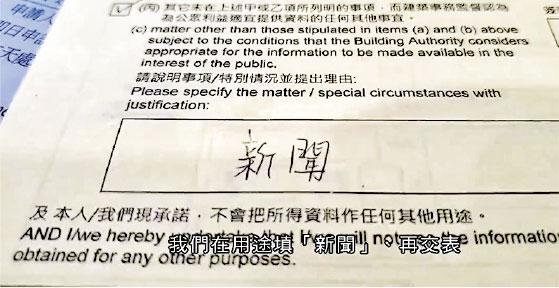 申請人
(丙) 其它未在上述甲或乙項所列明的事項，而建築事務監督認為
為公眾利益適宜提供資料的任何其他事宜。
(c) matter other than those stipulated in items (a) and (b) above
subject to the conditions that the Building Authority considers
appropriate for the information to be made available in the
interest of the public.
請說明事項/特別情況並提出理由:
Please specify the matter / special circumstances with
justification:
新聞
及 本人/我們現承諾，不會把所得資料作任何其他用途。
AND I/we hereby will not use the information
我們在用途填「新聞」，再交表
obtained for any other purposes.